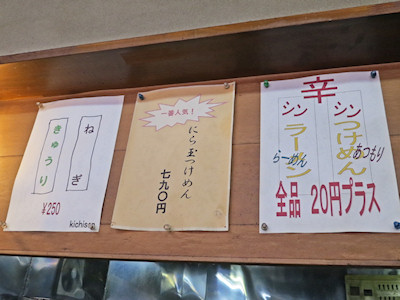 ねぎ
きゅうり
¥250
kichison
一番人気!
にら玉つけめん
七九〇円
辛
シン つけめん
あつもり
シン ラーメン
らーめん
全品 20円プラス